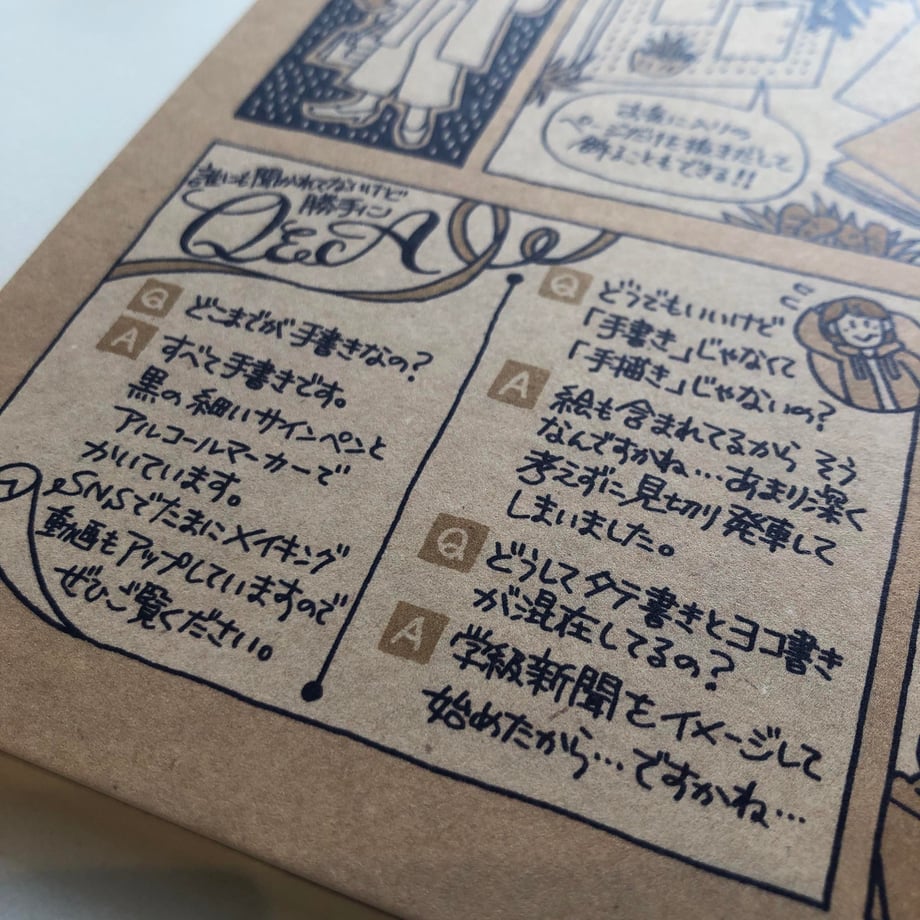 お気に入りの
ページだけを抜きだして
飾ることもできる!!
誰にも聞かれてないけど
勝手に
Q&A
Q どこまでが手書きなの?
A すべて手書きです。
黒の細いサインペンと
アルコールマーカーで
かいています。
SNSでたまにメイキング
動画もアップしていますので
ぜひご覧ください。
Q どうでもいいけど
「手書き」じゃなくて
「手描き」じゃないの?
A 絵も含まれてるから そう
なんですかね…あまり深く
考えずに見切り発車して
しまいました。
Q どうしてタテ書きとヨコ書き
が混在してるの?
A 学級新聞をイメージして
始めたから…ですかね…